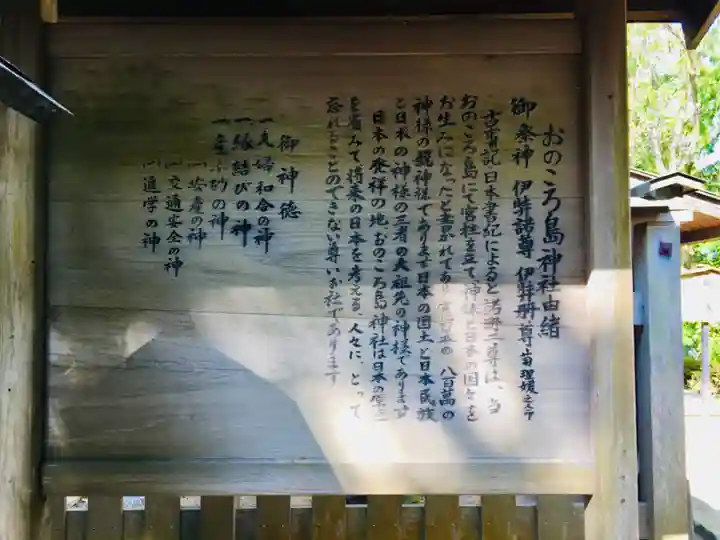 おのころ島神社由緒
御祭神 伊弉諾尊 伊弉冊尊 菊理媛之命
古事記日本書紀によると諾冊二尊は、当
おのころ島にて宮柱を立て、神様と日本の国々を
お生みになったと書かれてあり 八百萬の
神様の親神様であります日本の国土と日本民族
と日本の神様の三者の大祖先の神様であります
日本の発祥の地、おのころ島神社は日本の
を省みて、将来の日本を考える、人々に、とって
忘れることのできない尊いお社であります
御神徳
一、夫婦和合の神
一、縁結びの神
一、子授の神
(一)安産の神
(二)交通安全の神
(三)進学の神